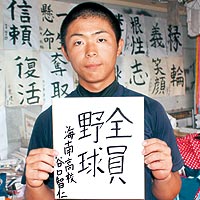 全員
野球
海南高校
谷口智仁
義縁輪
根性
志
笑顔
懸命
信頼
復活
奪取